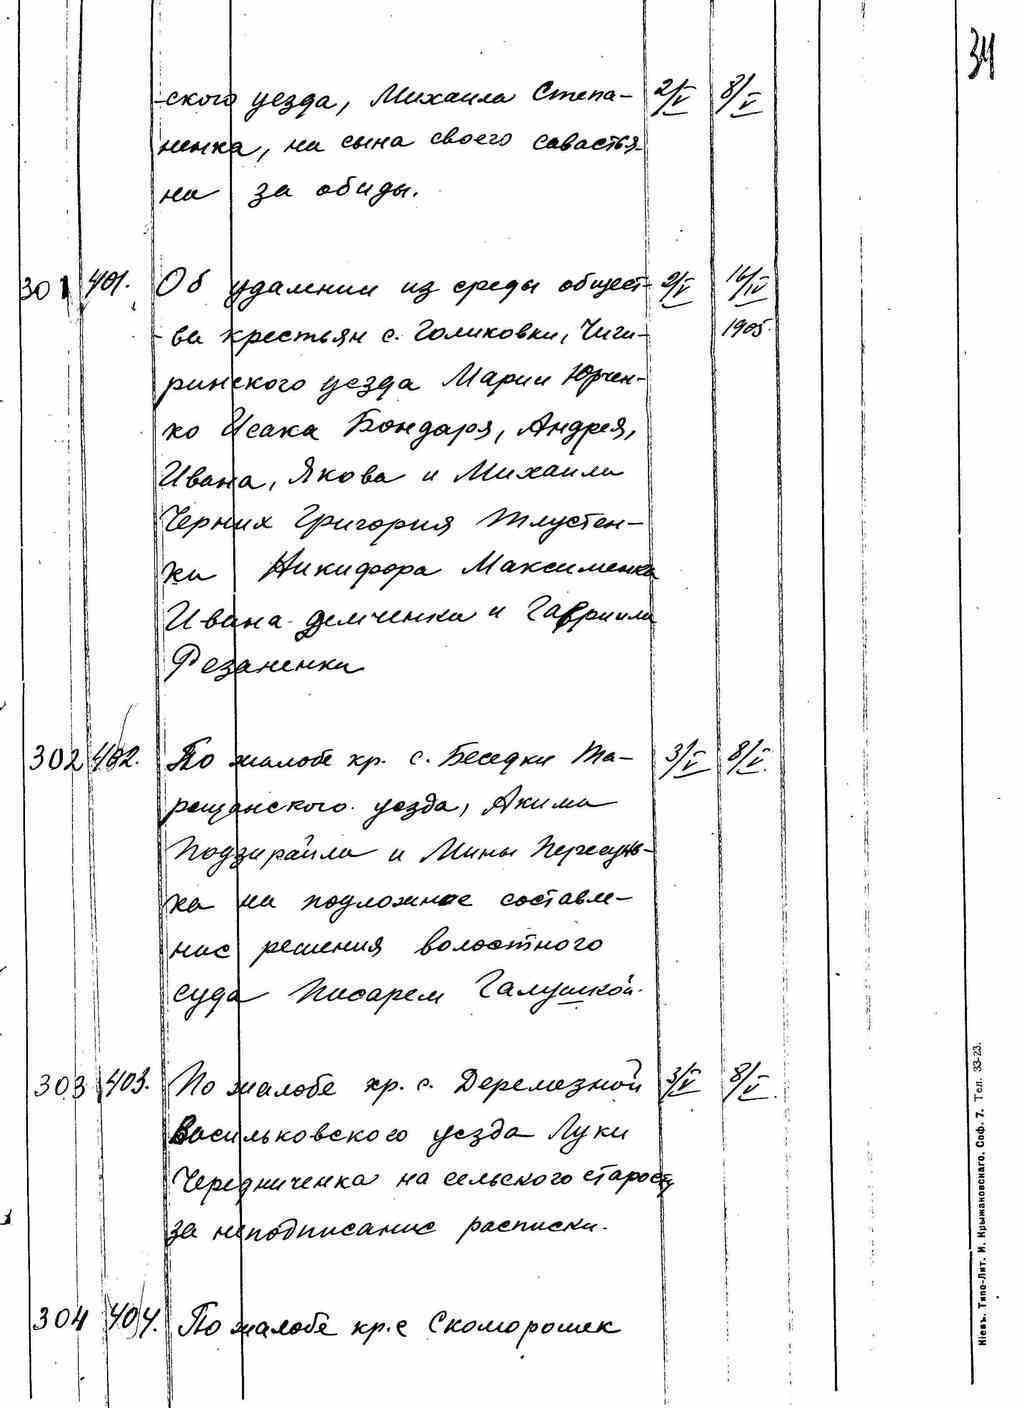 34
-ского уезда, Михаила Степа- 2/V 8/V
ненка, на сына своего Савастья-
на за обиды.
301 401. Об удалении из среды общест- 2/V 16/IV
-ва крестьян с. Голиковки, Чиги- 1905.
ринского уезда Марии Юрчен-
ко Исака Бондаря, Андрея,
Ивана, Якова и Михаила
Черних Григория Тлустен-
ка Никифора Максименка
Ивана Демченка и Гавриила
Резаненка
302 402. По жалобе кр. с. Беседки Та- 3/V 8/V.
ращанского уезда, Акима
Подзирайла и Мины Пересунь-
ка на подложное составле-
ние решения волостного
суда Писарем Галушкой.
303 403. По жалобе кр. с. Деремезной 3/V 8/V.
Васильковского уезда Луки
Чередниченка на сельского старосту
за неподписание расписки.
304 404. По жалобе кр. с Скоморошек
Кіевъ. Типо-Лит. И. Крыжановскаго. Соф. 7. Тел. 33-23.